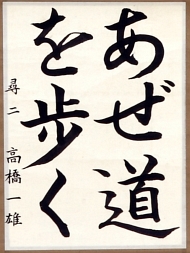 あぜ道
を歩く
尋二 高橋一雄